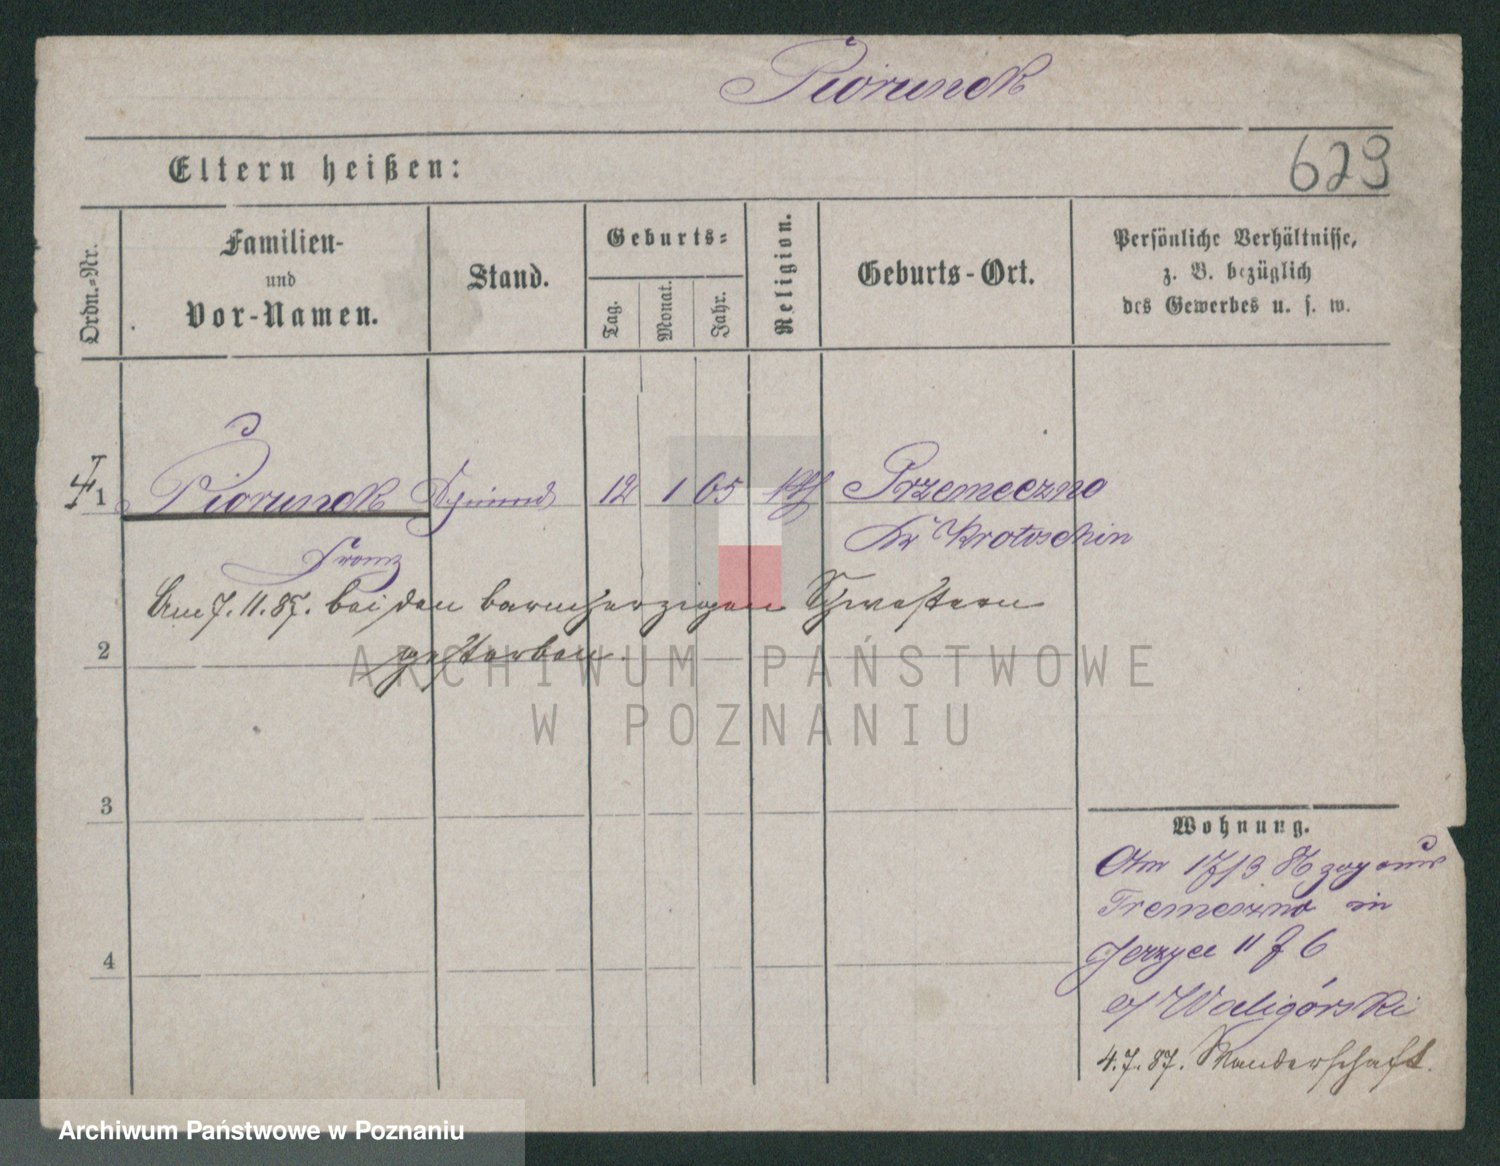 Piorunek
629
Eltern heißen:
Ordn.-Nr.
Familien-
und
Vor-Namen.
Stand.
Geburts-
Tag.
Monat.
Jahr.
Religion.
Geburts-Ort.
Persönliche Verhältnisse,
z. B. bezüglich
des Gewerbes u. s. w.
1 Piorunek 12 1 65 kth Przemeczno
Kr Krotoschin
Franz
Am 7. 11. 87. bei den barmherzigen Schwestern
gestorben.
2
3
4
Wohnung.
Am zog aus
Tremeszno in
Jerzyce 11 f 6
b/ Waligórski
4.7.87. Wanderschaft.
ARCHIWUM PAŃSTWOWE
W POZNANIU
Archiwum Państwowe w Poznaniu